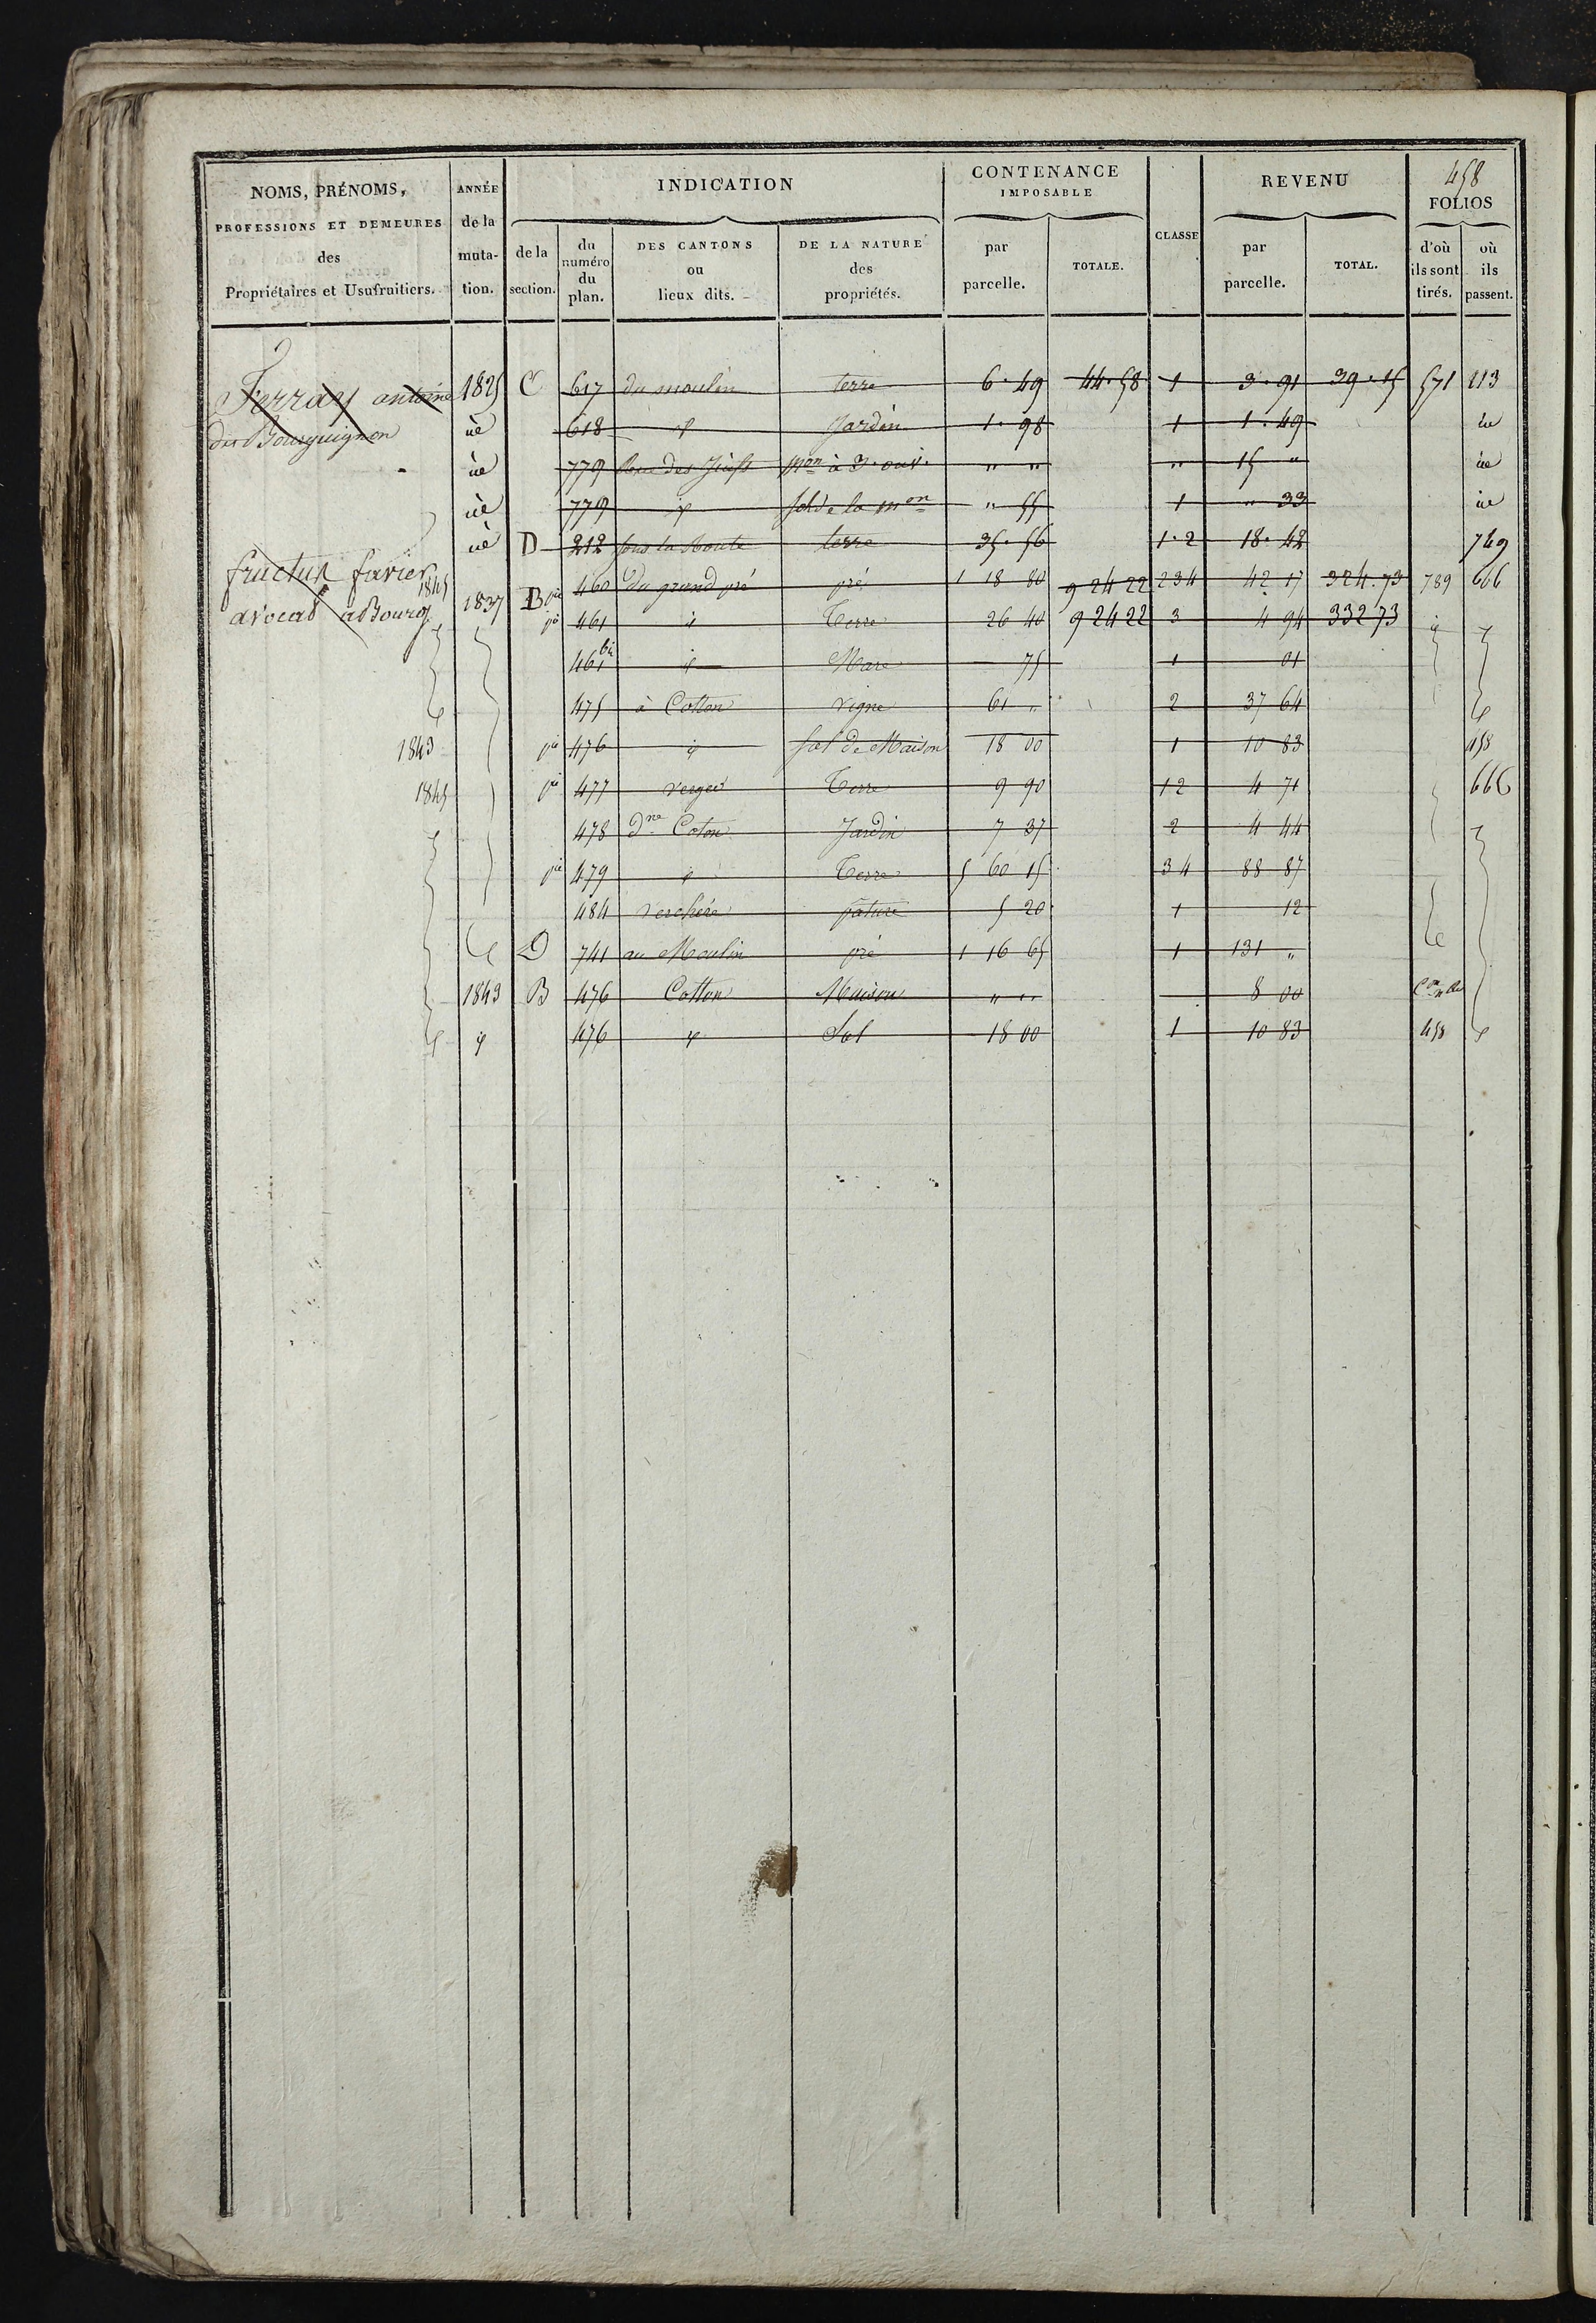 458
NOMS, PRÉNOMS, PROFESSIONS ET DEMEURES des Propriétaires et Usufruitiers.
ANNÉE de la muta- tion.
INDICATION
de la section.
du numéro du plan.
DES CANTONS ou lieux dits.
DE LA NATURE des propriétés.
CONTENANCE IMPOSABLE
par parcelle.
TOTALE.
CLASSE
REVENU
par parcelle.
TOTAL.
FOLIOS
d'où ils sont tirés.
où ils passent.
Ferray antoine 1825 C 617 du moulin terre 6.49 44.58 1 3.91 39.15 571 213
dit Bourguignon 618 Jardin 1.98 1 1.49
779 Rue des Juifs mon à 3. ouv. " " " 15 "
779 sol de la mon " 55 1 " 33
D 212 sous la Route terre 35.56 1.2 18.42 749
fructus favier 1845 pie 460 du grand pré pré 1 18 80 9 24 22 234 42 17 324.73 789 666
avocat à Bourg 1837 B pie 461 Terre 26 40 9 24 22 3 4 94 332 73
461 bis Mare 75 1 01
475 à Cotton vigne 61 " 2 37 64
1843 pie 476 sol de Maison 18 00 1 10 83 458
1845 pie 477 verger Terre 9 90 12 4 71 666
478 Coton Jardin 7 37 2 4 44
pie 479 Terre 5 60 15 34 88 87
484 verchère pature 5 20 1 12
D 741 au Moulin pré 1 16 65 1 131 "
1843 B 476 Cotton Maison " " 8 00
476 Sol 18 00 1 10 83 458